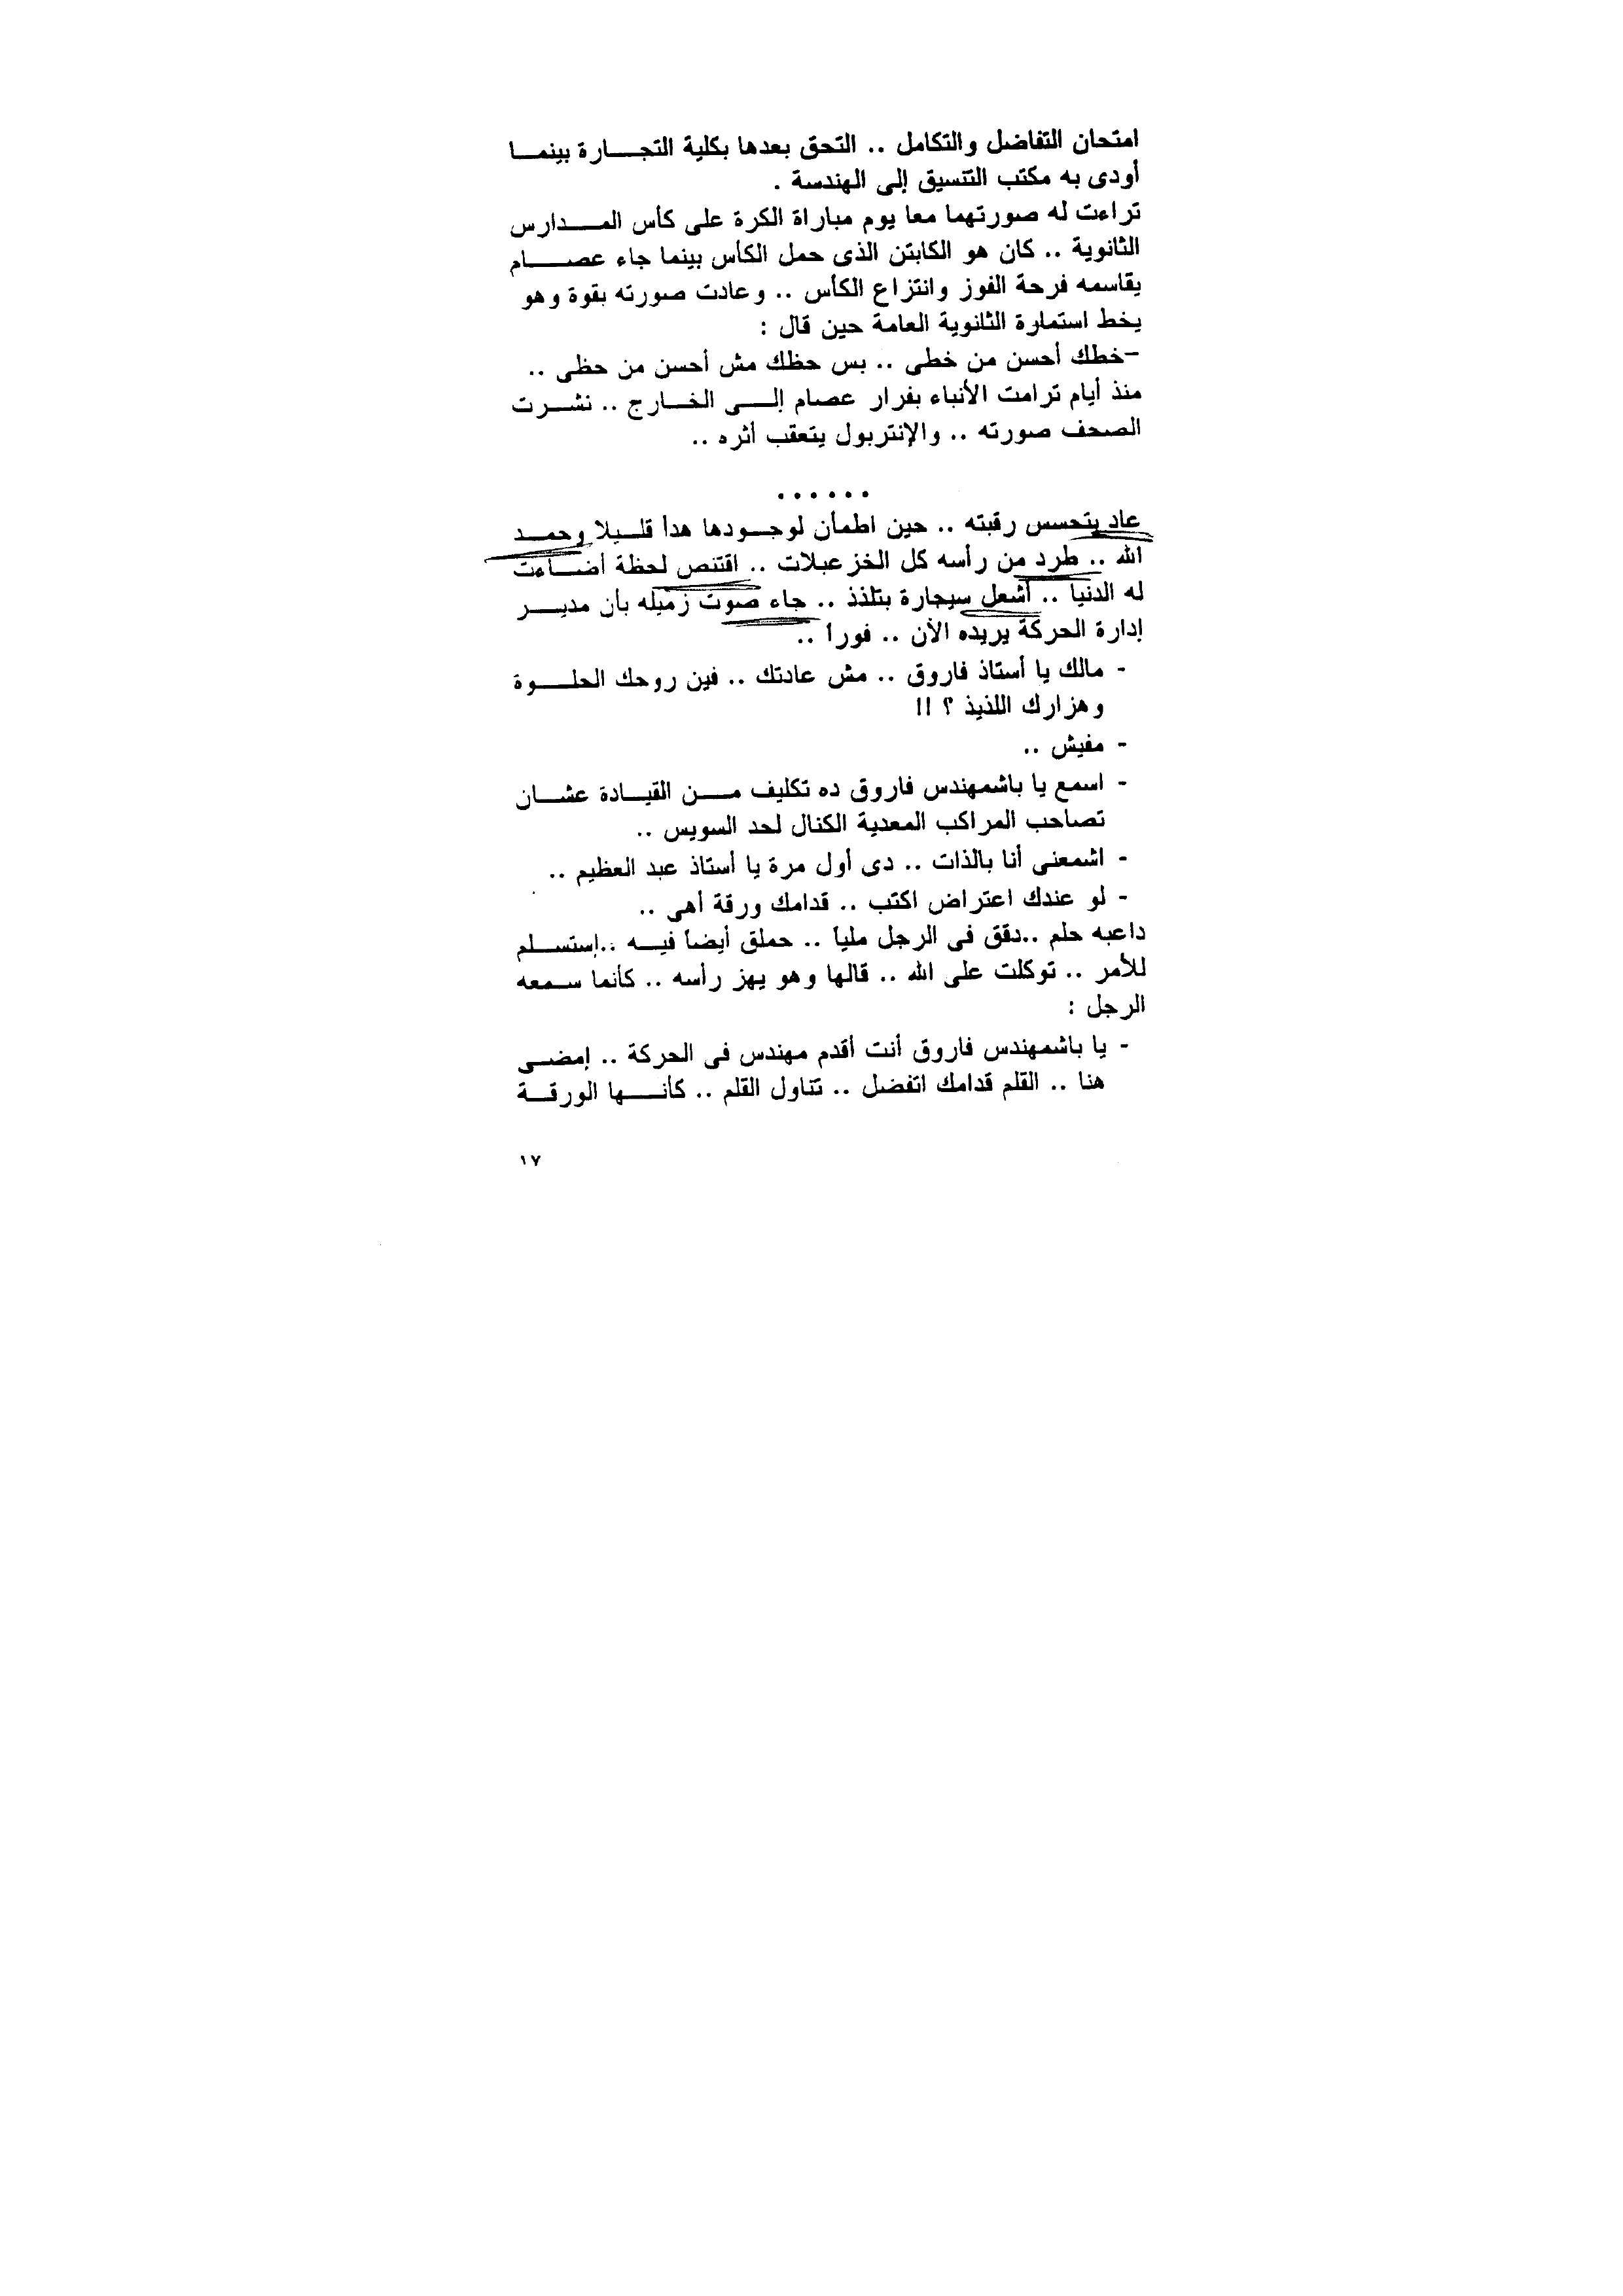 امتحان التفاضل والتكامل .. التحق بعدها بكلية التجارة بينما
أودى به مكتب التنسيق إلى الهندسة .
تراءت له صورتهما معا يوم مباراة الكرة على كأس المدارس
الثانوية .. كان هو الكابتن الذى حمل الكأس بينما جاء عصام
يقاسمه فرحة الفوز وانتزاع الكأس .. وعادت صورته بقوة وهو
يخط استمارة الثانوية العامة حين قال :
-خطك أحسن من خطى .. بس حظك مش أحسن من حظى ..
منذ أيام ترامت الأنباء بفرار عصام إلى الخارج .. نشرت
الصحف صورته .. والإنتربول يتعقب أثره ..
......
عاد يتحسس رقبته .. حين اطمأن لوجودها هدأ قليلا وحمد
الله .. طرد من رأسه كل الخزعبلات .. اقتنص لحظة أضاءت
له الدنيا .. أشعل سيجارة بتلذذ .. جاء صوت زميله بأن مدير
إدارة الحركة يريده الآن .. فوراً ..
- مالك يا أستاذ فاروق .. مش عادتك .. فين روحك الحلوة
وهزارك اللذيذ ؟ !!
- مفيش ..
- اسمع يا باشمهندس فاروق ده تكليف من القيادة عشان
تصاحب المراكب المعدية الكنال لحد السويس ..
- اشمعنى أنا بالذات .. دى أول مرة يا أستاذ عبد العظيم ..
- لو عندك اعتراض اكتب .. قدامك ورقة أهى ..
داعبه حلم ..دقق فى الرجل ملياً .. حملق أيضاً فيه ..إستسلم
للأمر .. توكلت على الله .. قالها وهو يهز رأسه .. كأنما سمعه
الرجل :
- يا باشمهندس فاروق أنت أقدم مهندس فى الحركة .. إمضى
هنا .. القلم قدامك اتفضل .. تناول القلم .. كأنها الورقة
١٧